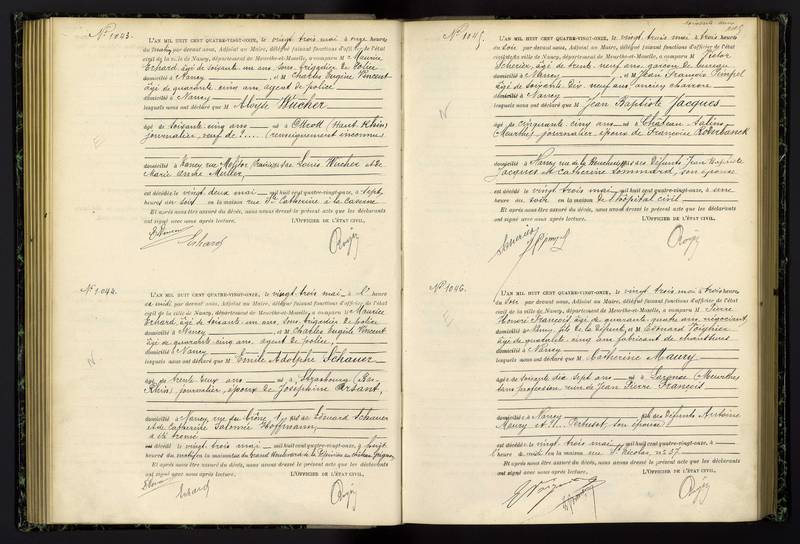 No 1043.
L'AN MIL HUIT CENT QUATRE-VINGT-ONZE, le vingt trois mai à onze heures
du matin par devant nous, Adjoint au Maire, délégué faisant fonctions d'officier de l'état
civil de la ville de Nancy, département de Meurthe-et-Moselle, a comparu M. Maurice
Erhard, âgé de soixante un ans, sous brigadier de police
domicilié à Nancy, et M. Charles Eugène Vincent
âgé de quarante cinq ans, agent de police
domicilié à Nancy
lesquels nous ont déclaré que M. Aloyse Wucher
âgé de soixante cinq ans né à (Haut Rhin)
journalier, veuf de ?.... (renseignement inconnu
domicilié à Nancy rue Louis Wucher et de
Marie
est décédé le vingt deux mai mil huit cent quatre-vingt-onze, à sept
heures du soir en la maison rue Ste Catherine à la caserne
Et après nous être assuré du décès, nous avons dressé le présent acte que les déclarants
ont signé avec nous après lecture. L'OFFICIER DE L'ÉTAT CIVIL.
Erhard
No 1044.
L'AN MIL HUIT CENT QUATRE-VINGT-ONZE, le vingt trois mai à heure
et midi par devant nous, Adjoint au Maire, délégué faisant fonctions d'officier de l'état
civil de la ville de Nancy, département de Meurthe-et-Moselle, a comparu M. Maurice
Erhard, âgé de soixante un ans, sous brigadier de police
domicilié à Nancy, et M. Charles Eugène Vincent
âgé de quarante cinq ans, agent de police,
domicilié à Nancy
lesquels nous ont déclaré que M. Emile Adolphe Schauer
âgé de trente deux ans né à Strasbourg (Bas-
Rhin) journalier, époux de Joséphine Arsant,
domicilié à Nancy, rue du fils de Edouard Schauer
et de Catherine Salomée Hoffmann,
a été trouvé
décédé le vingt trois mai mil huit cent quatre-vingt-onze, à huit
heures du matin en la maison Grand Boulevard de la
Et après nous être assuré du décès, nous avons dressé le présent acte que les déclarants
ont signé avec nous après lecture. L'OFFICIER DE L'ÉTAT CIVIL.
Erhard
No 1045.
L'AN MIL HUIT CENT QUATRE-VINGT-ONZE, le vingt trois mai à trois heures
du soir par devant nous, Adjoint au Maire, délégué faisant fonctions d'officier de l'état
civil de la ville de Nancy, département de Meurthe-et-Moselle, a comparu M. Victor
âgé de trente neuf ans garçon de bureau
domicilié à Nancy, et M. Jean François
âgé de soixante dix neuf ans ancien charron
domicilié à Nancy
lesquels nous ont déclaré que M. Jean Baptiste Jacques
âgé de cinquante cinq ans né à Château Salins
Meurthe, journalier époux de Françoise
domicilié à Nancy rue de la fils des défunts Jean Baptiste
Jacques et Catherine Sommard, son épouse
est décédé le vingt trois mai mil huit cent quatre-vingt-onze, à une
heure du soir en la maison de l'hôpital civil
Et après nous être assuré du décès, nous avons dressé le présent acte que les déclarants
ont signé avec nous après lecture. L'OFFICIER DE L'ÉTAT CIVIL.
No 1046.
L'AN MIL HUIT CENT QUATRE-VINGT-ONZE, le vingt trois mai à trois heures
du soir par devant nous, Adjoint au Maire, délégué faisant fonctions d'officier de l'état
civil de la ville de Nancy, département de Meurthe-et-Moselle, a comparu M. Pierre
Honoré François, âgé de quarante quatre ans, négociant,
domicilié à Nancy, fils de la défunte, et M. Edouard
âgé de quarante cinq ans fabricant de chaussures
domicilié à Nancy
lesquels nous ont déclaré que M. Catherine Maury
âgée de soixante dix sept ans née à (Meurthe)
sans profession, veuve de Jean Pierre François
domiciliée à Nancy fille des défunts Antoine
Maury et son épouse
est décédée le vingt trois mai mil huit cent quatre-vingt-onze, à
heure midi en la maison rue St Nicolas, no 57.
Et après nous être assuré du décès, nous avons dressé le présent acte que les déclarants
ont signé avec nous après lecture. L'OFFICIER DE L'ÉTAT CIVIL.